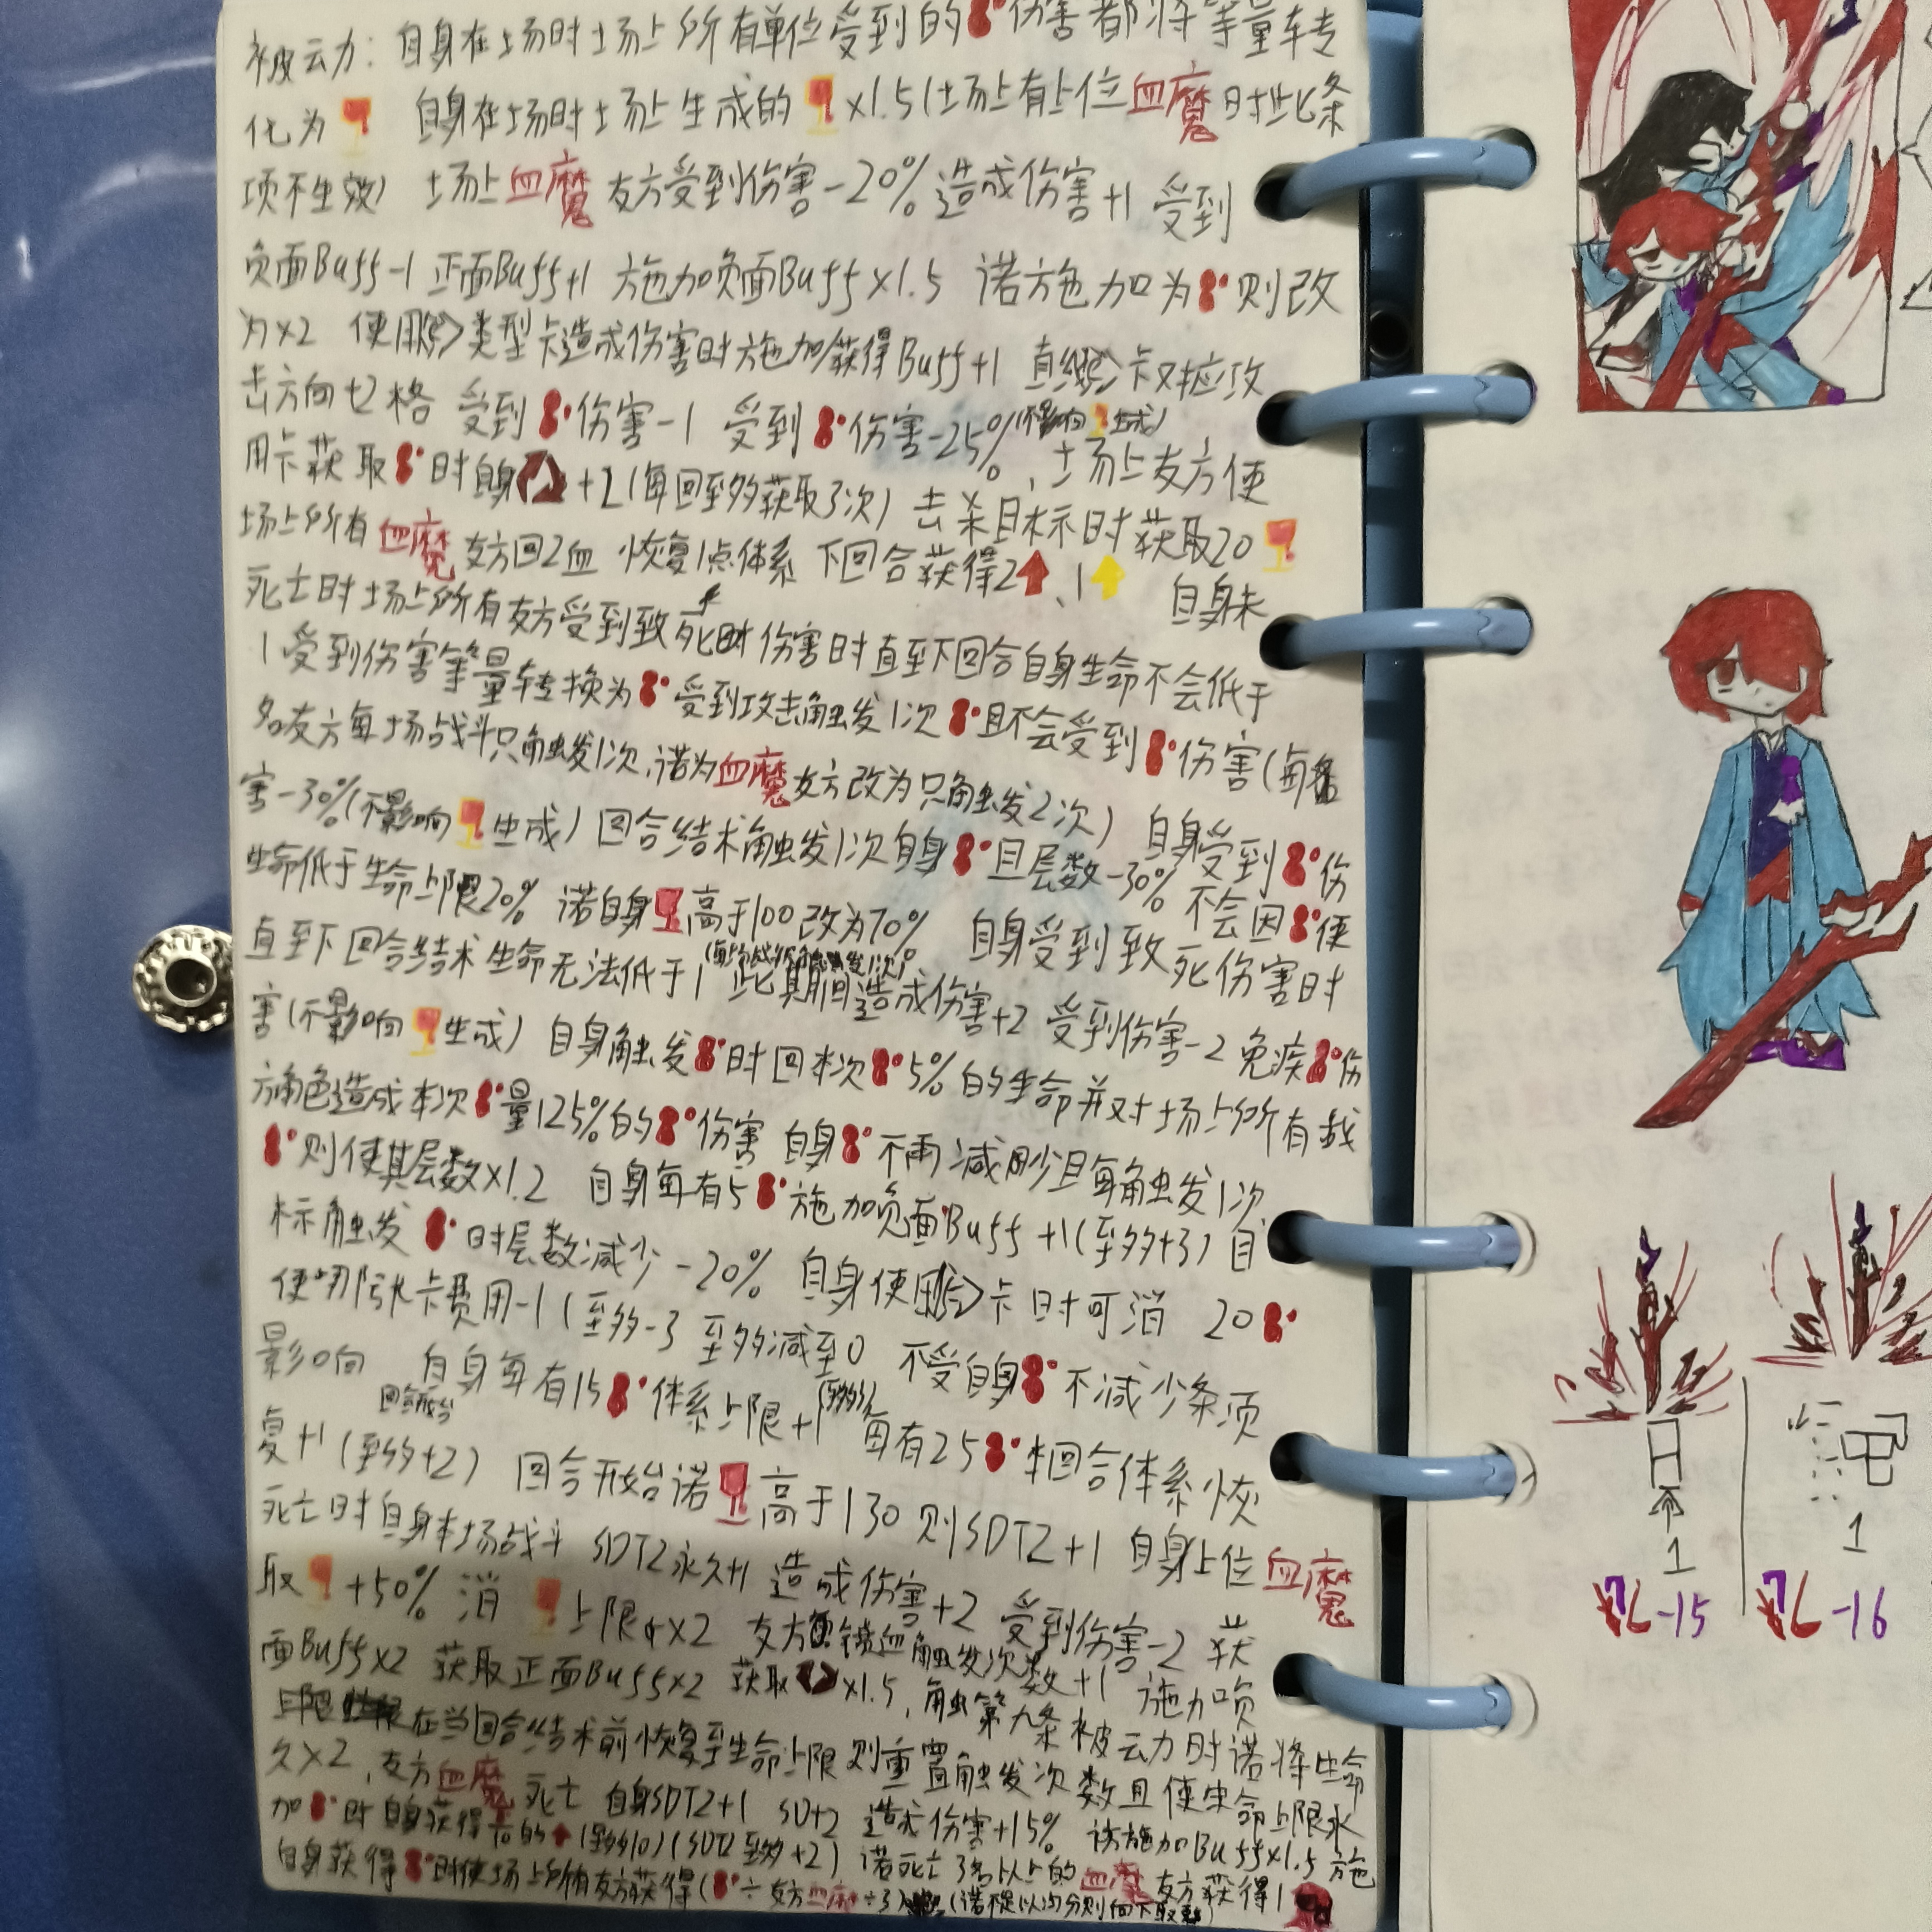 被动力：自身在场时场上所有单位受到的伤害都将等量转
化为 自身在场时场上生成的 ×1.5(场上有上位血魔时此条
项不生效) 场上血魔友方受到伤害-20% 造成伤害+1 受到
负面Buff-1 正面Buff+1 施加负面Buff×1.5 诺施加为 则改
为×2 使用 类型卡造成伤害时施加获得Buff+1 直 卡对应攻
击方向 格 受到 伤害-1 受到 伤害-25%(不影响 生成)
用卡获取 时自身 +2(每回至多获取3次) 击杀目标时获取20
、场上友方使
场上所有血魔友方回2血 恢复1点体系 下回合获得2 、1 自身未
死亡时场上所有友方受到致死 伤害时直至下回合自身生命不会低于
1 受到伤害等量转换为 受到攻击触发1次 且不会受到 伤害(每
名友方每场战斗只触发1次,诺为血魔友方改为只触发2次) 自身受到 伤
害-30%(不影响 生成) 回合结术触发1次自身 且层数-30% 不会因 使
生命低于生命上限20% 诺自身 高于100改为70% 自身受到致死伤害时
直至下回合结术生命无法低于1 此期间造成伤害+2 受到伤害-2 免疾 伤
害(不影响 生成) 自身触发 时回本次 5%的生命并对场上所有敌
方角色造成本次 量125%的 伤害 自身 不再减少且每触发1次
则使其层数×1.2 自身每有5 施加负面Buff+1(至多+3) 目
标触发 时层数减少-20% 自身使用 卡时可消 20
使 卡费用-1(至多-3 至多减至0 不受自身 不减少条项
影响 自身每有15 体系上限+1 每有25 本回合体系恢
复+1(至多+2) 回合开始诺 高于130则SDT2+1 自身上位血魔
死亡时自身本场战斗 SDT2永久+1 造成伤害+2 受到伤害-2 获
取 +50% 消 上限 ×2 友方 触发次数+1 施加负
面Buff×2 获取正面Buff×2 获取 ×1.5,触 第九条被动力时诺将生命
上限 在当回合结术前恢复至生命上限则重置触发次数且使生命上限永
久×2,友方血魔死亡 自身SDT2+1 SD+2 造成伤害+15% 施加Buff×1.5 施
加 时自身获得 的 (至多10)(SDT2至多+2) 诺死亡3名以上的血魔友方获得1
自身获得 时使场上所有友方获得( ÷友方血魔÷3) (诺不足以均分则向下取整)
1
1
-15
-16